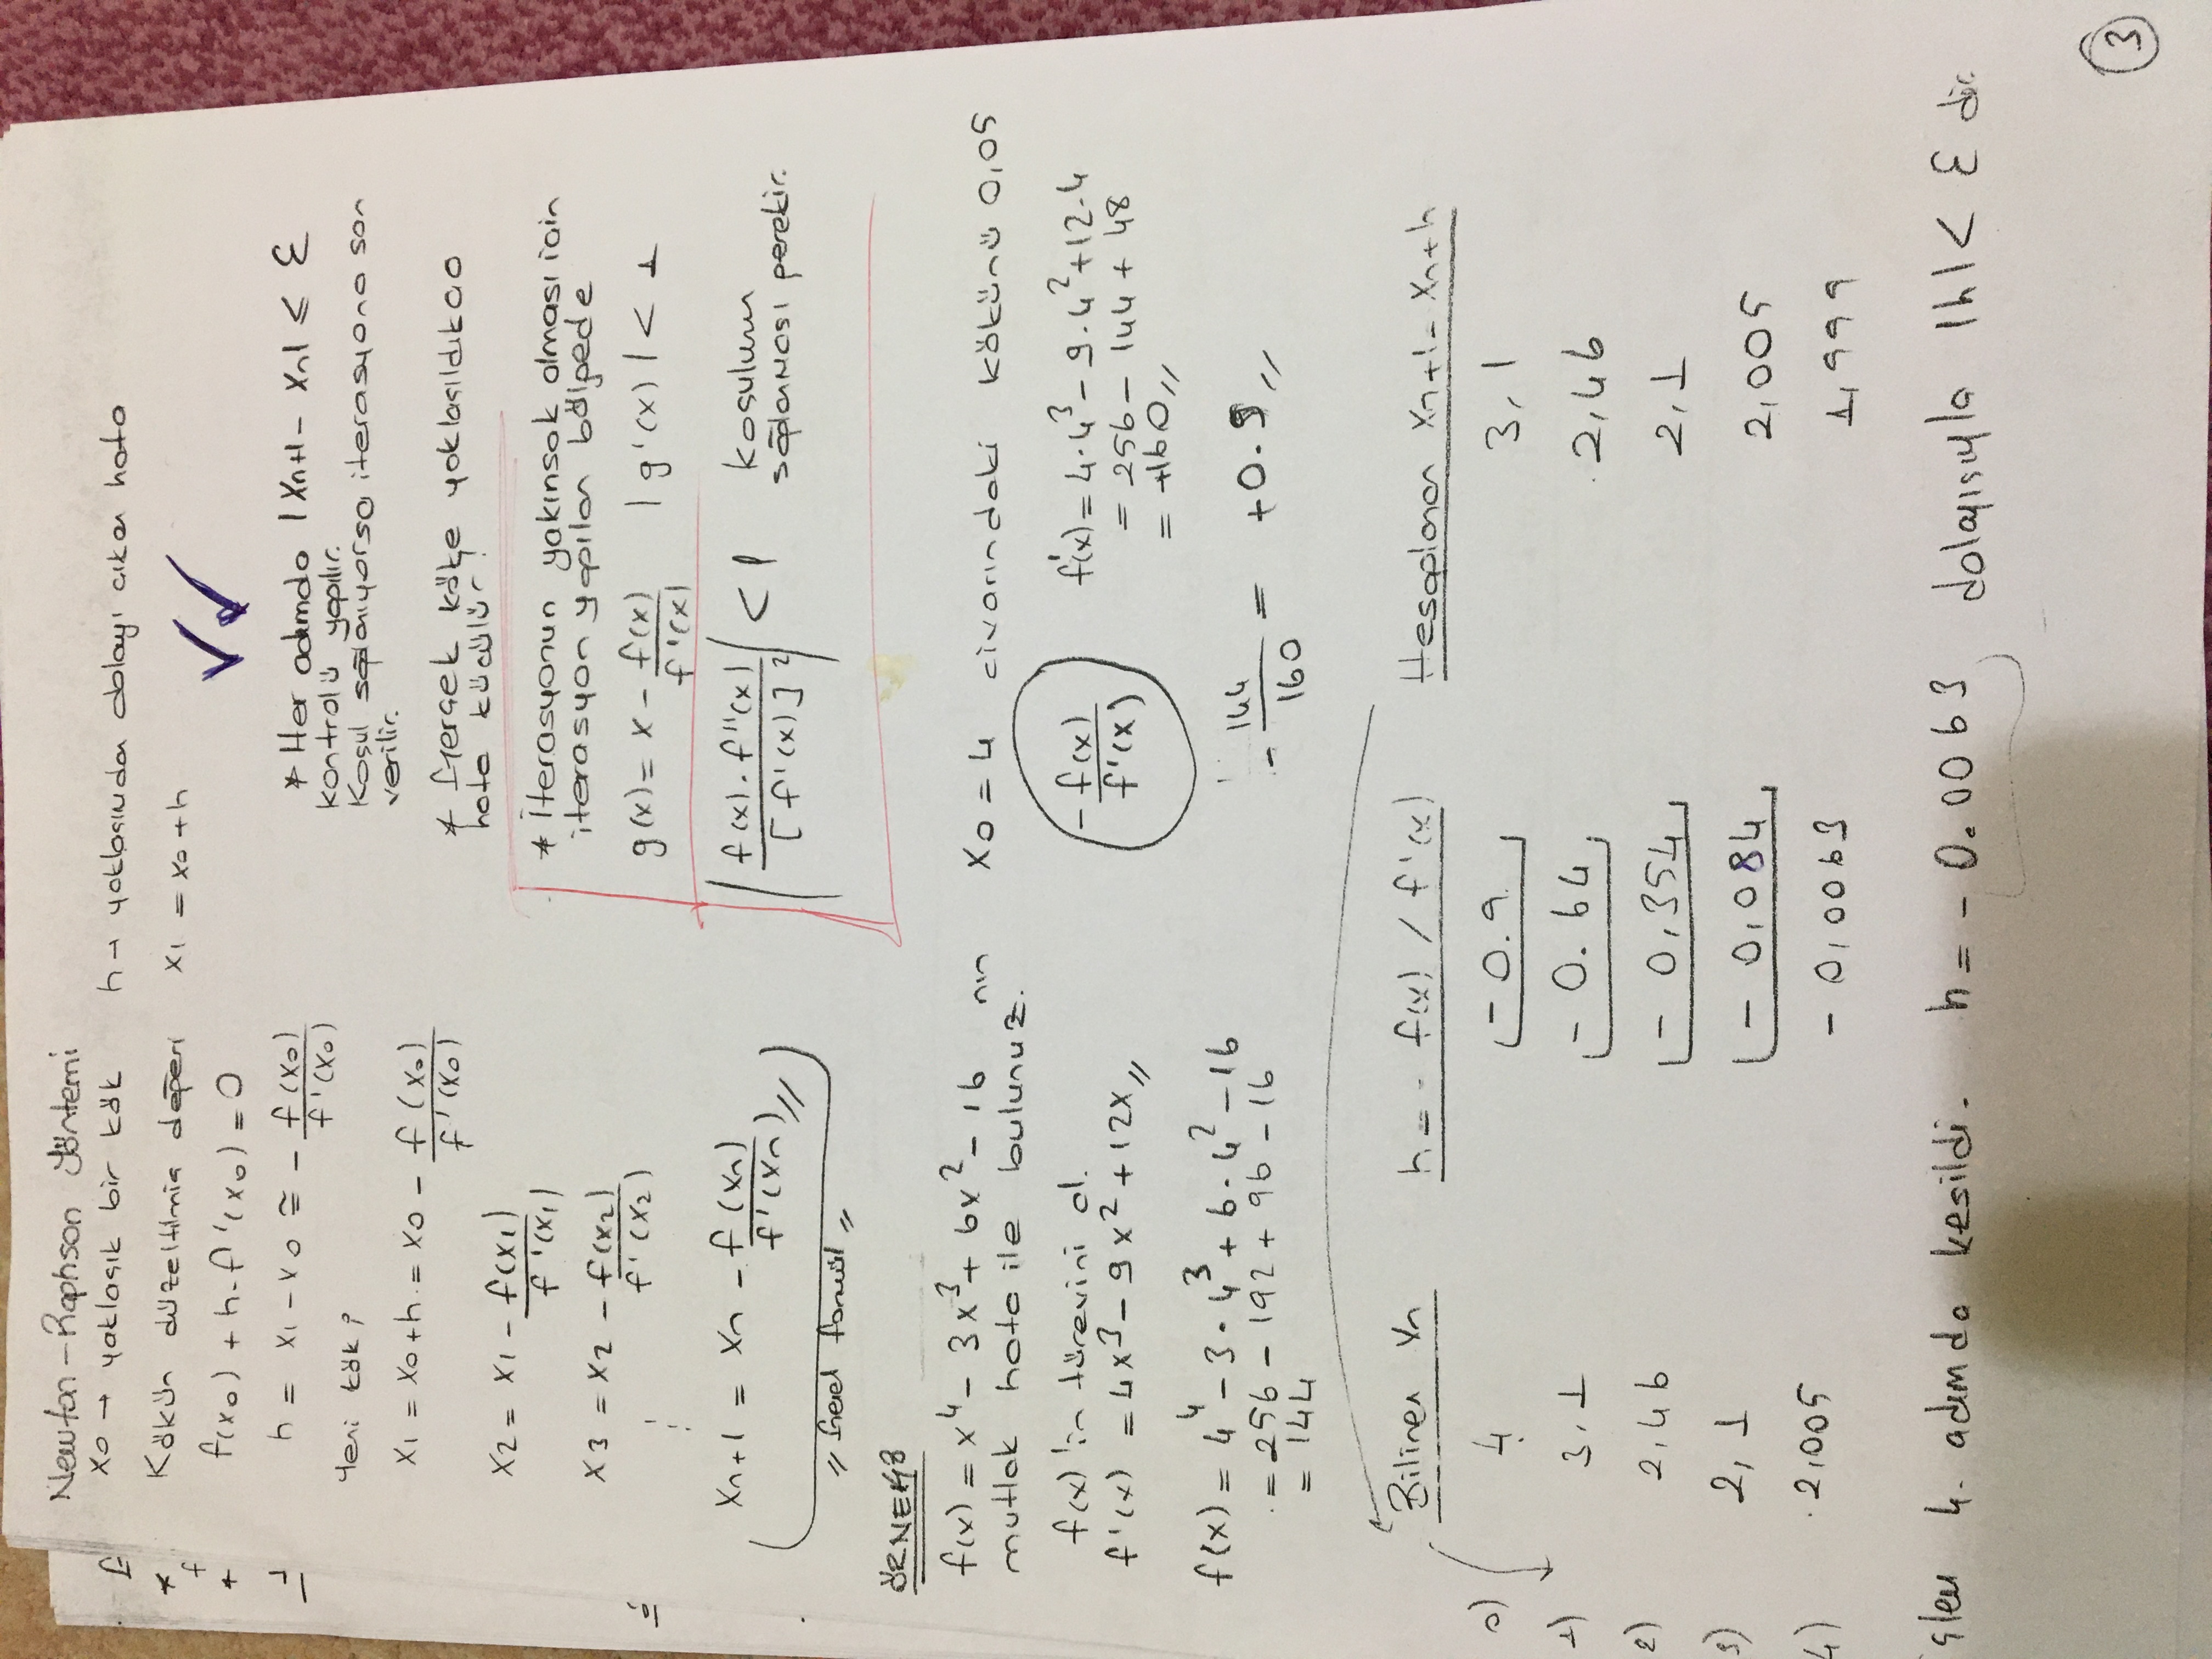 Newton-Raphson Yöntemi
x0 → yaklaşık bir kök h → yaklaşımdan dolayı çıkan hata
Kökün düzeltilmiş değeri x1 = x0 + h
f(x0) + h. f'(x0) = 0
h = x1 - x0 ≅ - f(x0) / f'(x0)
Yeni kök;
x1 = x0 + h = x0 - f(x0) / f'(x0)
x2 = x1 - f(x1) / f'(x1)
x3 = x2 - f(x2) / f'(x2)
xn+1 = xn - f(xn) / f'(xn) //
// Genel formül //
* Her adımda |xn+1 - xn| ≤ ε
kontrolü yapılır.
Koşul sağlanıyorsa iterasyona son
verilir.
* Gerçek köke yaklaşıldıkça
hata küçülür!
* İterasyonun yakınsak olması için
iterasyon yapılan bölgede
g(x) = x - f(x) / f'(x) |g'(x)| < 1
| f(x). f''(x) / [f'(x)]² | < 1 koşulunun
sağlanması gerekir.
ÖRNEK8
f(x) = x⁴ - 3x³ + 6x² - 16 nın x0 = 4 civarındaki kökünü 0,05
mutlak hata ile bulunuz.
f(x)'in türevini al.
f'(x) = 4x³ - 9x² + 12x //
f(x) = 4⁴ - 3.4³ + 6.4² - 16
= 256 - 192 + 96 - 16
= 144
- f(x) / f'(x)
f'(x) = 4.4³ - 9.4² + 12.4
= 256 - 144 + 48
= +160 //
- 144 / 160 = +0.9 //
Bilinen xn h = - f(x) / f'(x) Hesaplanan xn+1 = xn + h
0) 4 -0.9 3,1
1) 3,1 -0.64 2,46
2) 2,46 -0,354 2,1
3) 2,1 -0,084 2,005
4) 2,005 -0,0063 1,999
işlem 4. adımda kesildi. h = -0.0063 dolayısıyla |h| < ε dir.
3